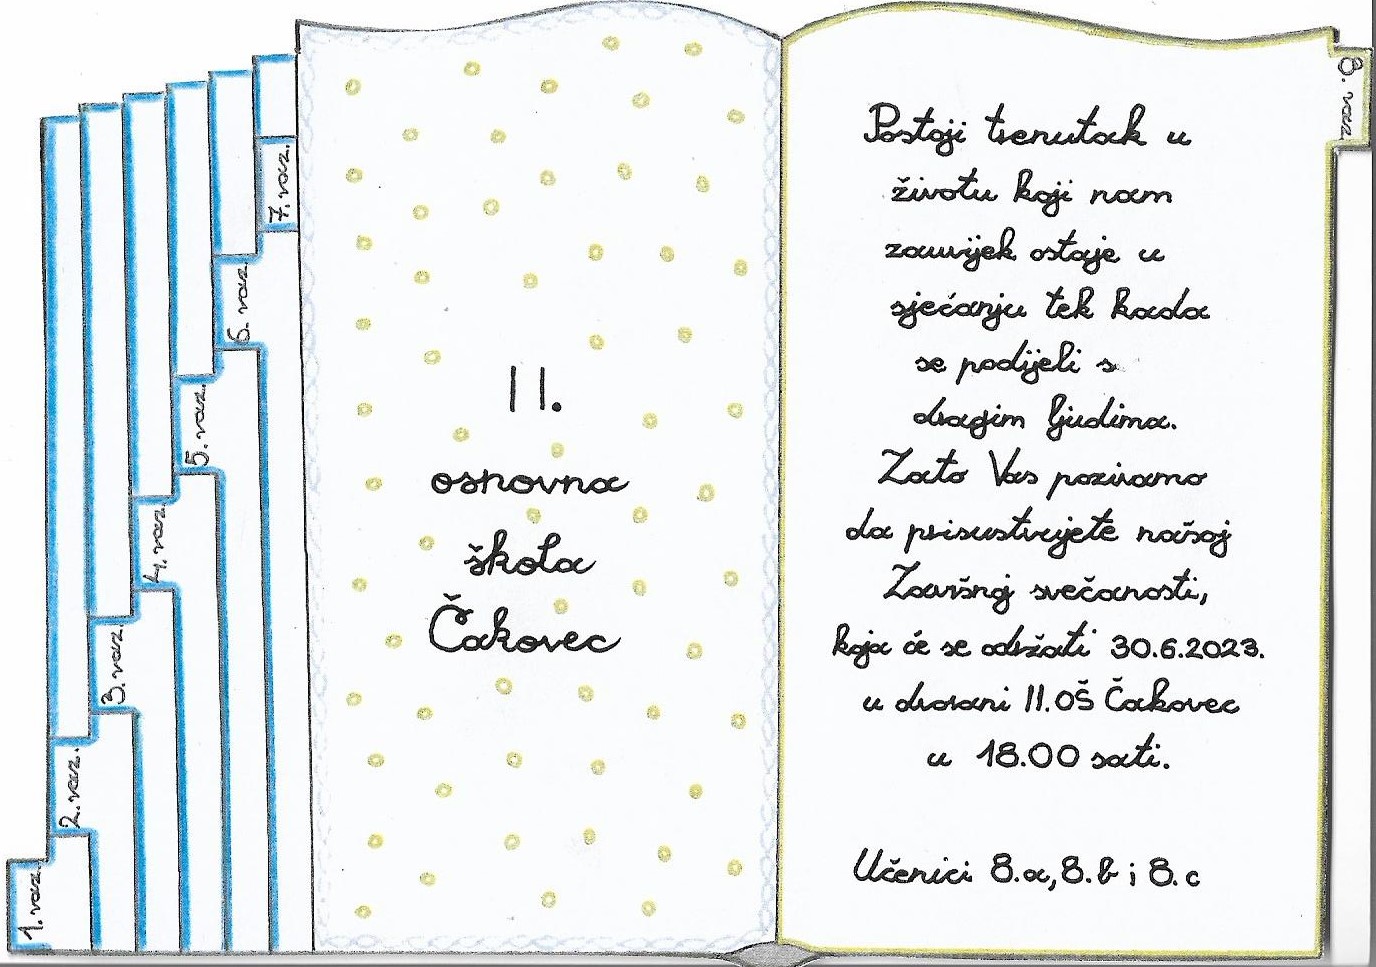 1. raz.
2. raz.
3. raz.
4. raz.
5. raz.
6. raz.
7. raz.
II.
osnovna
škola
Čakovec
8. raz.
Postoji trenutak u
životu koji nam
zauvijek ostaje u
sjećanju tek kada
se podijeli s
dragim ljudima.
Zato Vas pozivamo
da prisustvujete našoj
Završnoj svečanosti,
koja će se održati 30.6.2023.
u dvorani II.OŠ Čakovec
u 18.00 sati.
Učenici 8.a, 8.b i 8.c